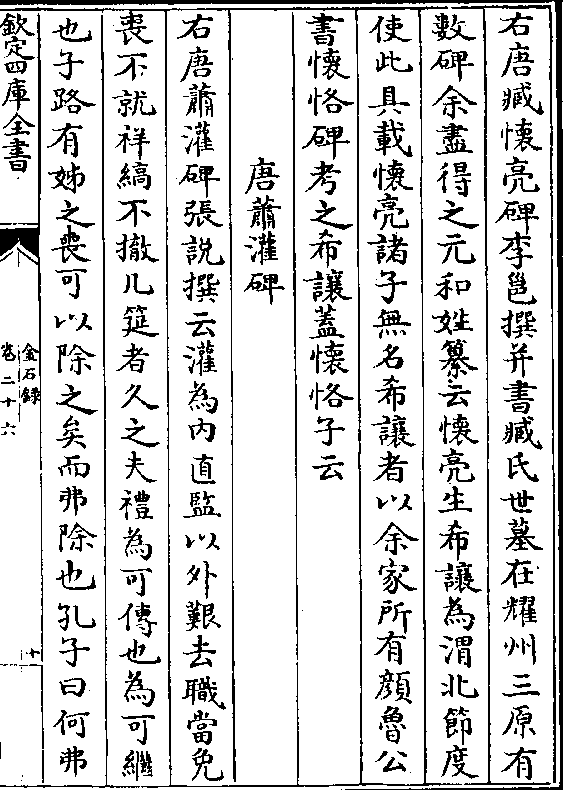 右唐臧懷亮碑李邕撰并書臧氏世墓在耀州三原有
數碑余盡得之元和姓纂云懷亮生希讓為渭北節度
使此具載懷亮諸子無名希讓者以余家所有顔魯公
書懷恪碑考之希讓蓋懷恪子云
唐蕭灌碑
右唐蕭灌碑張說撰云灌為内直監以外艱去職當免
喪不就祥縞不撤几筵者久之夫禮為可傳也為可繼
也子路有姊之喪可以除之矣而弗除也孔子曰何弗
欽定四庫全書
金石錄
卷二十六
十